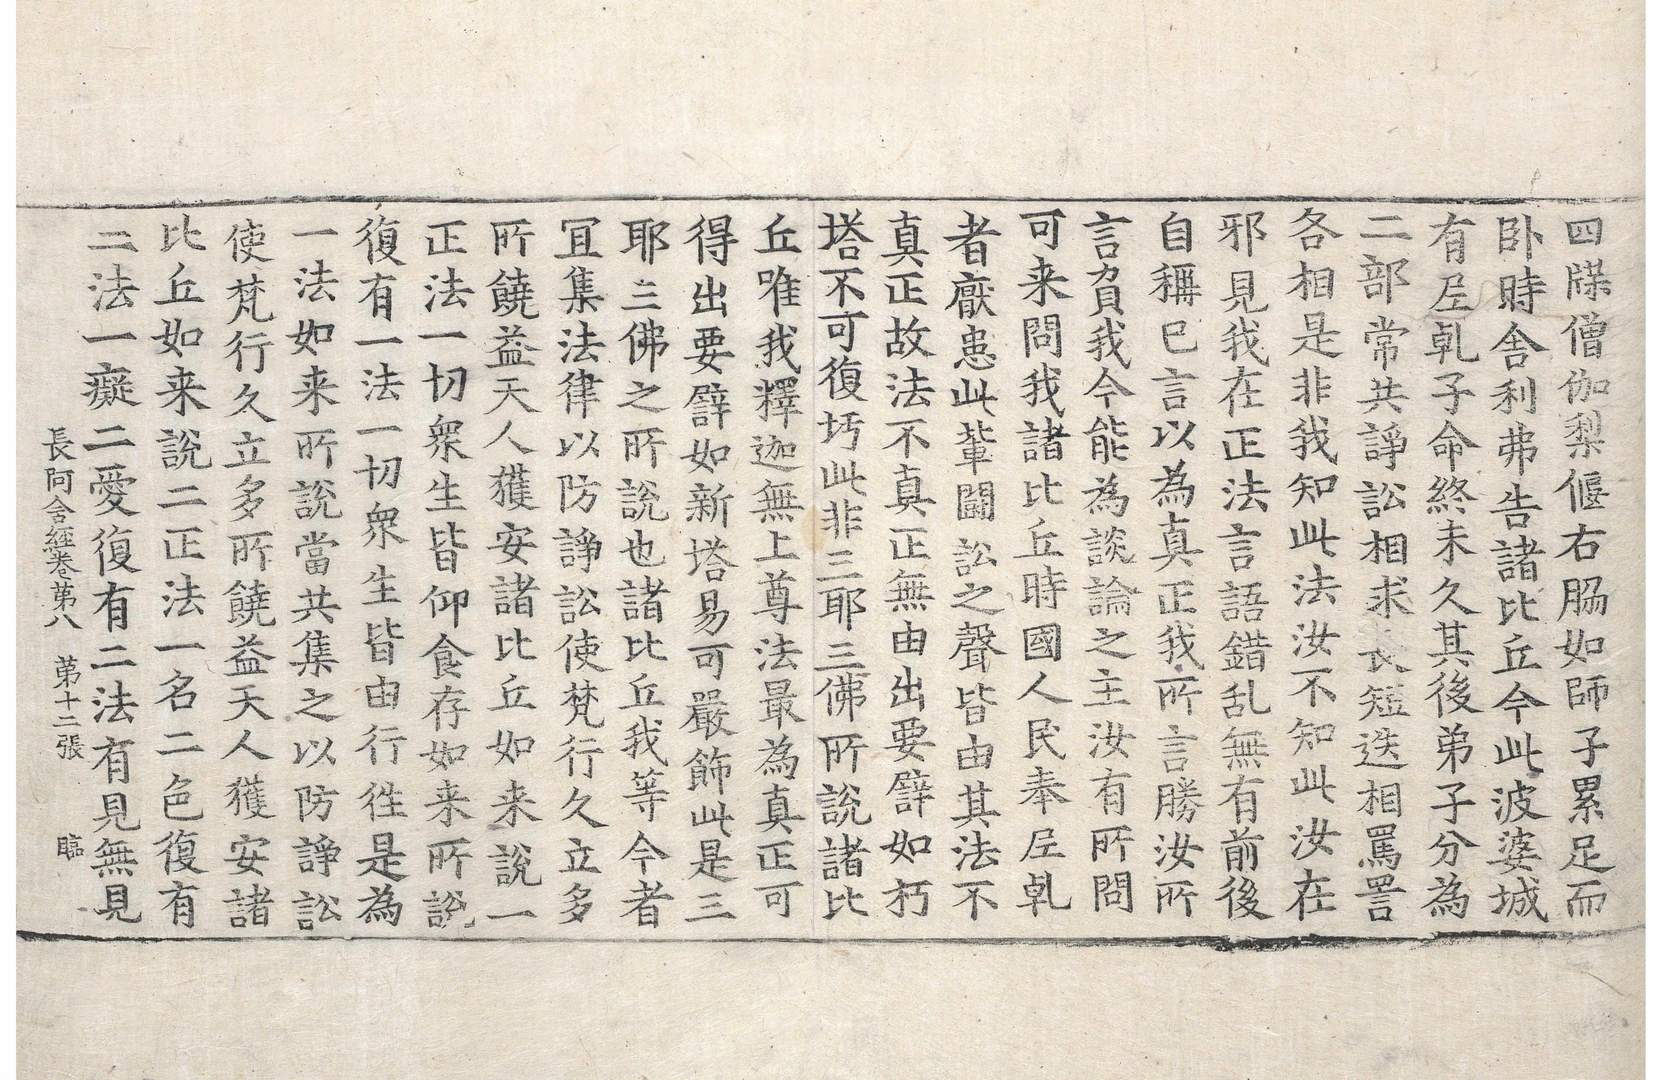 四牒僧伽梨偃右脇如師子累足而
卧時舍利弗告諸比丘今此波婆城
有𡰱乹子命終未久其後弟子分為
二部常共諍訟相求長短迭相罵詈
各相是非我知此法汝不知此汝在
邪見我在正法言語錯乱無有前後
自稱已言以為真正我所言勝汝所
言負我今能為談論之主汝有所問
可来問我諸比丘時國人民奉𡰱乹
者厭患此輩鬪訟之聲皆由其法不
真正故法不真正無由出要譬如朽
塔不可復圬此非三耶三佛所說諸比
丘唯我釋迦無上尊法最為真正可
得出要譬如新塔易可嚴飾此是三
耶三佛之所說也諸比丘我等今者
冝集法律以防諍訟使梵行久立多
所饒益天人獲安諸比丘如来說一
正法一切衆生皆仰食存如来所說
復有一法一切衆生皆由行徃是為
一法如来所說當共集之以防諍訟
使梵行久立多所饒益天人獲安諸
比丘如来說二正法一名二色復有
二法一癡二愛復有二法有見無見
長阿含經卷第八 第十二張 臨